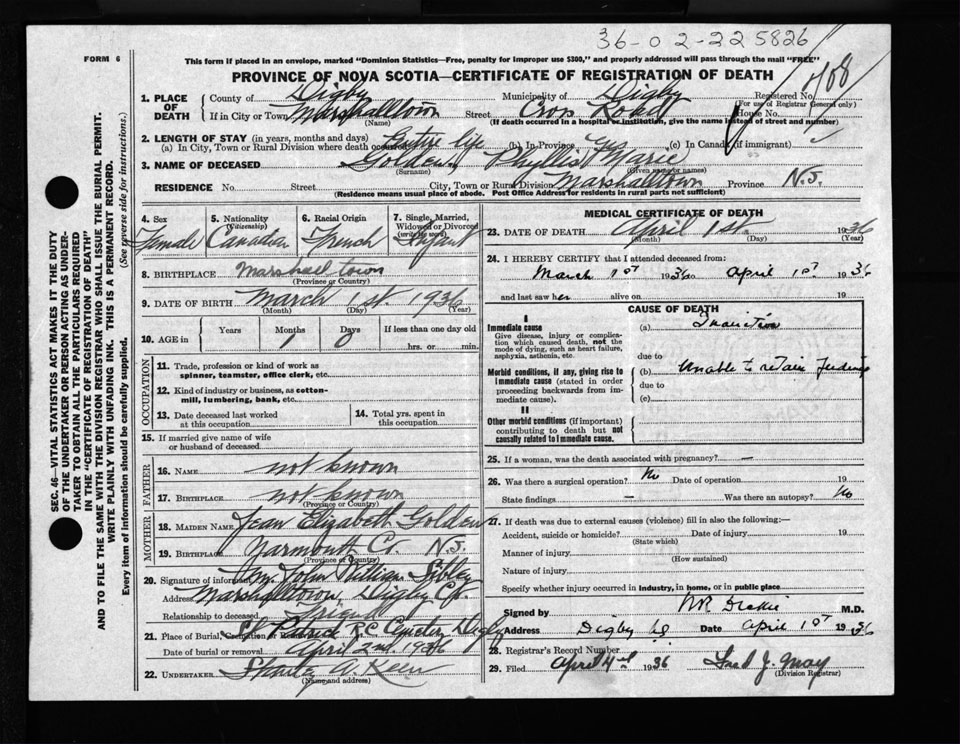 36-02-225826
FORM 6
This form if placed in an envelope, marked "Dominion Statistics—Free, penalty for improper use $300," and properly addressed will pass through the mail "FREE"
PROVINCE OF NOVA SCOTIA—CERTIFICATE OF REGISTRATION OF DEATH
SEC. 46—VITAL STATISTICS ACT MAKES IT THE DUTY
OF THE UNDERTAKER OR PERSON ACTING AS UNDER-
TAKER TO OBTAIN ALL THE PARTICULARS REQUIRED
IN THE "CERTIFICATE OF REGISTRATION OF DEATH"
AND TO FILE THE SAME WITH THE DIVISION REGISTRAR WHO SHALL ISSUE THE BURIAL PERMIT.
WRITE PLAINLY WITH UNFADING INK. THIS IS A PERMANENT RECORD.
Every item of information should be carefully supplied. (See reverse side for instructions.)
1. PLACE OF DEATH County of Digby Municipality of Digby Registered No.
(For use of Registrar General only)
If in City or Town Marshalltown Street Cross Road House No.
(Name) (If death occurred in a hospital or institution, give the name instead of street and number)
2. LENGTH OF STAY (in years, months and days)
(a) In City, Town or Rural Division where death occurred Entire life (b) In Province Yes (c) In Canada (if immigrant)
3. NAME OF DECEASED Golden, Phyllis Marie
(Surname) (Given name or names)
RESIDENCE No. Street City, Town or Rural Division Marshalltown Province N.S.
(Residence means usual place of abode. Post Office Address for residents in rural parts not sufficient)
4. Sex Female
5. Nationality (Citizenship) Canadian
6. Racial Origin French
7. Single, Married, Widowed or Divorced (write the word) Infant
8. BIRTHPLACE Marshall town
(Province or Country)
9. DATE OF BIRTH March 1st 1936
(Month) (Day) (Year)
10. AGE in Years Months 1 Days 0 If less than one day old
hrs. or min.
OCCUPATION
11. Trade, profession or kind of work as
spinner, teamster, office clerk, etc.
12. Kind of industry or business, as cotton-
mill, lumbering, bank, etc.
13. Date deceased last worked
at this occupation
14. Total yrs. spent in
this occupation
15. If married give name of wife
or husband of deceased
FATHER
16. NAME not known
17. BIRTHPLACE not known
(Province or Country)
MOTHER
18. MAIDEN NAME Jean Elizabeth Golden
19. BIRTHPLACE Yarmouth Co. N.S.
(Province or Country)
20. Signature of informant Mr. John William Sibley
Address Marshalltown, Digby Co.
Relationship to deceased Friend
21. Place of Burial, Cremation or St Patrick R.C. Cemetery Digby
Date of burial or removal April 2nd 1936
22. UNDERTAKER Stanley A. Keen
(Name and address)
MEDICAL CERTIFICATE OF DEATH
23. DATE OF DEATH April 1st 1936
(Month) (Day) (Year)
24. I HEREBY CERTIFY that I attended deceased from:
March 1st 1936 to April 1st 1936
and last saw her alive on 19
CAUSE OF DEATH
I
Immediate cause
Give disease, injury or complica-
tion which caused death, not the
mode of dying, such as heart failure,
asphyxia, asthenia, etc.
(a) Inanition
due to
Morbid conditions, if any, giving rise to
Immediate cause (stated in order
proceeding backwards from im-
mediate cause).
(b) Unable to retain feedings
due to
(c)
II
Other morbid conditions (if important)
contributing to death but not
causally related to immediate cause.
25. If a woman, was the death associated with pregnancy? —
26. Was there a surgical operation? No Date of operation 19
State findings — Was there an autopsy? No
27. If death was due to external causes (violence) fill in also the following:—
Accident, suicide or homicide? Date of injury 19
(State which)
Manner of injury
(How sustained)
Nature of injury
Specify whether injury occurred in industry, in home, or in public place
Signed by Dickie M.D.
Address Digby Date April 1st 1936
28. Registrar's Record Number
29. Filed April 4th 1936 Fred J. May
(Division Registrar)